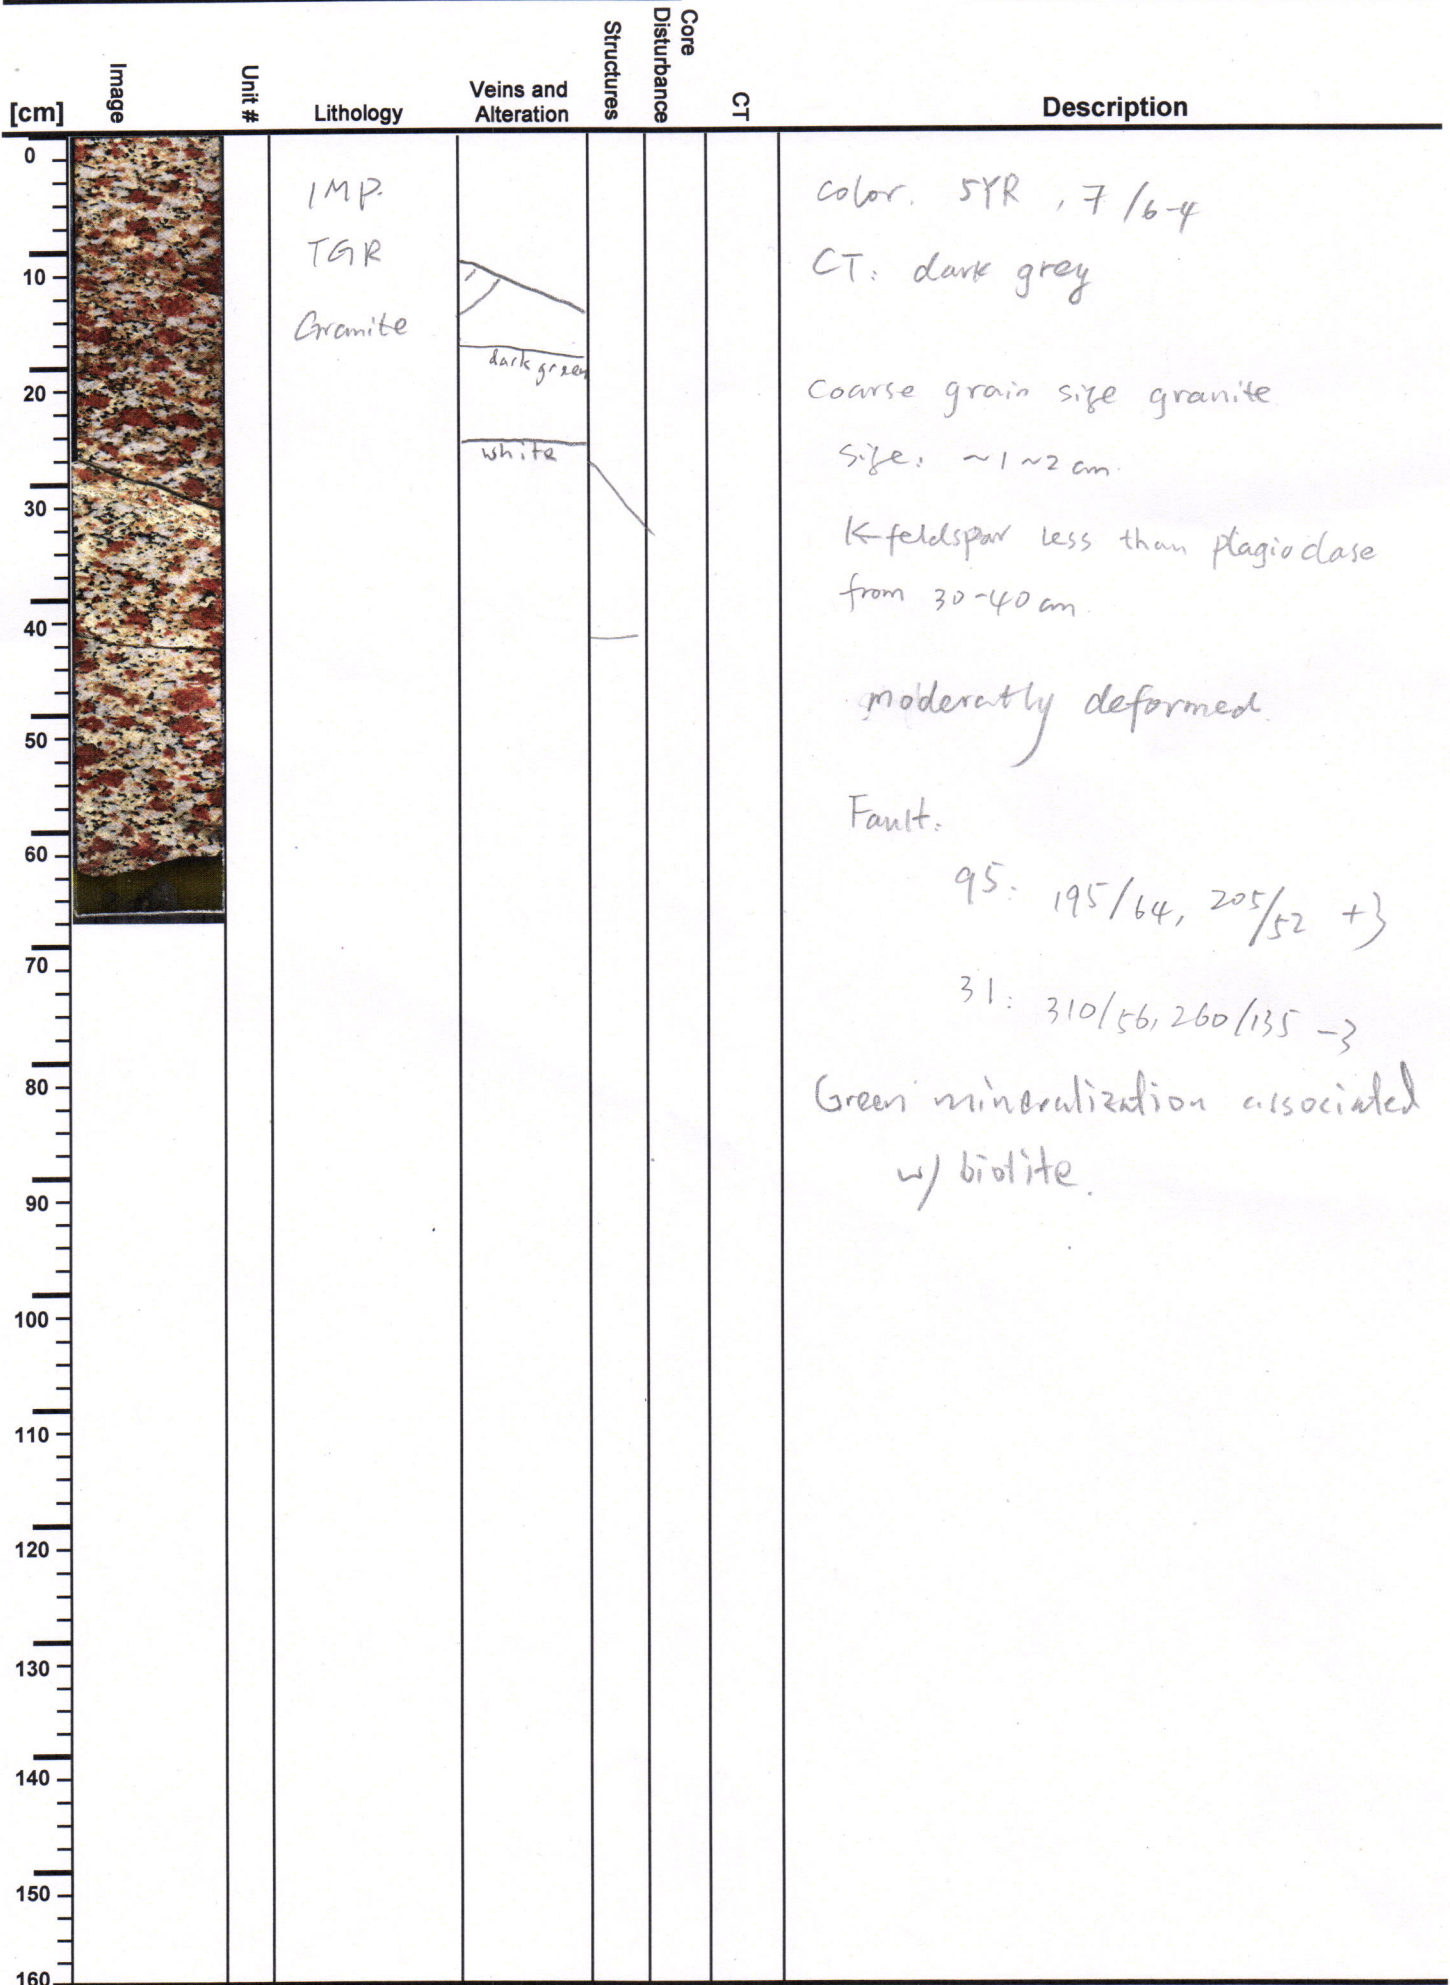 [cm]
Image
Unit #
Lithology
Veins and
Alteration
Structures
Core
Disturbance
CT
Description
0
10
20
30
40
50
60
70
80
90
100
110
120
130
140
150
160
IMP.
TGR
Granite
dark green
white
color. 5YR , 7/6-4
CT: dark grey
coarse grain size granite
size: ~1~2 cm
K-feldspar less than plagioclase
from 30-40 cm.
moderatly deformed.
Fault:
95: 195/64, 205/52 +3
31: 310/56, 260/135 -3
Green mineralization associated
w/ biotite.